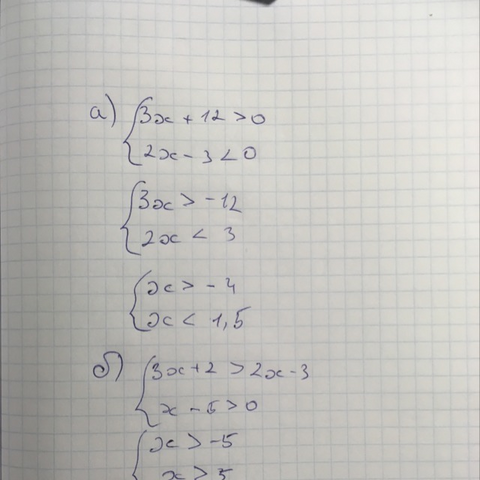 а) { 3x + 12 > 0
2x - 3 < 0
{ 3x > -12
2x < 3
{ x > -4
x < 1,5
б) { 3x+2 > 2x-3
x - 5 > 0
{ x > -5
x > 5